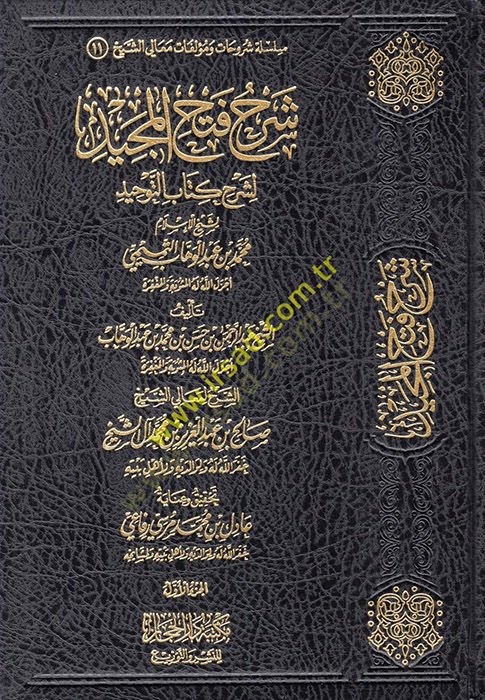 سلسلة شروحات ومؤلفات معالي الشيخ ١١
شرح فتح المجيد
لشرح كتاب التوحيد
لشيخ الإسلام
محمد بن عبد الوهاب التميمي
أجزل الله له المثوبة والمغفرة
تأليف
الشيخ عبد الرحمن بن حسن بن محمد بن عبد الوهاب
أجزل الله له المثوبة والمغفرة
الشرح لمعالي الشيخ
صالح بن عبد العزيز بن محمد آل الشيخ
غفر الله له ولوالديه ولأهل بيته
تحقيق وعناية
عادل بن محمد مرسي رفاعي
غفر الله له ولوالديه ولأهل بيته ولمشايخه
الجزء الأول
مكتبة دار الحجاز
للنشر والتوزيع
شرح فتح المجيد
www.irsad.com.tr